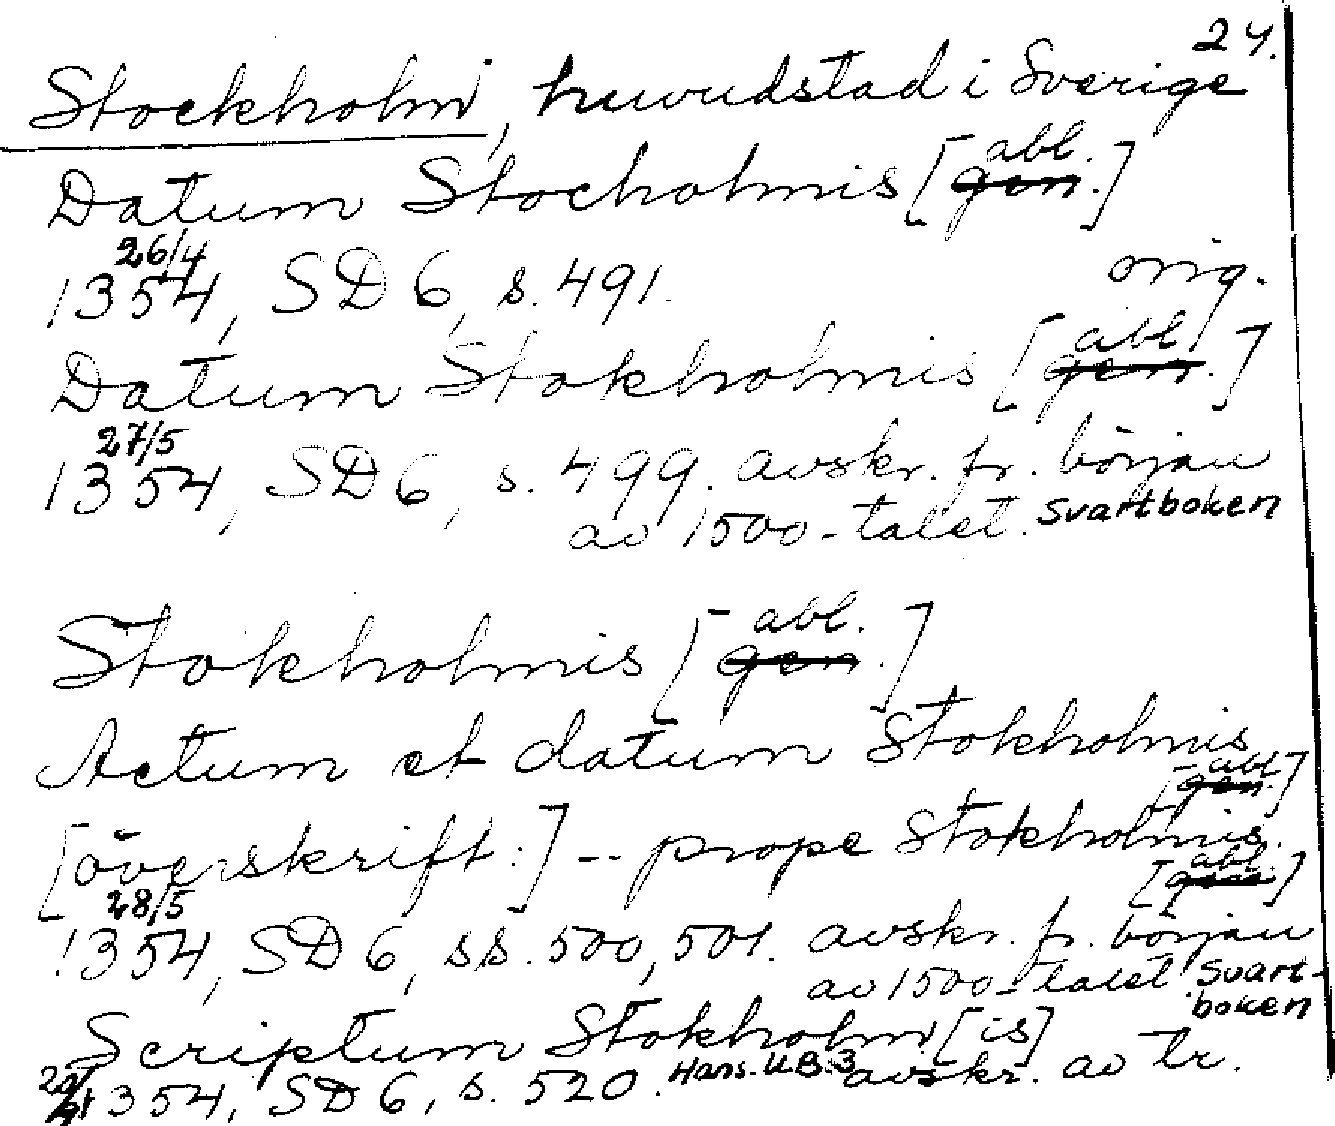 24.
Stockholm, huvudstad i Sverige
Datum Stocholmis [gen.] abl.
26/4
1354, SD 6, s. 491. orig.
Datum Stokholmis [gen.] abl.
27/5
1354, SD 6, s. 499. avskr. fr. början
av 1500-talet. Svartboken
Stokholmis [gen.] abl.
Actum et datum Stokholmis
[gen.] abl.
[överskrift.] -- prope Stokholmis.
[gen.] abl.
28/5
1354, SD 6, ss. 500, 501. avskr. fr. början
av 1500-talet Svart-
boken
Scriptum Stokholm[is]
1354, SD 6, s. 520. Hans. U.B. 3 avskr. av tr.